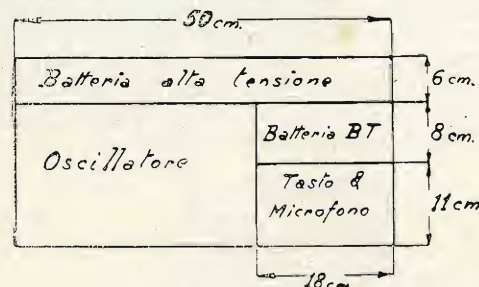 50 cm.
Batteria alta tensione
6 cm.
Batteria BT
8 cm.
Oscillatore
Tasto &
Microfono
11 cm
18 cm